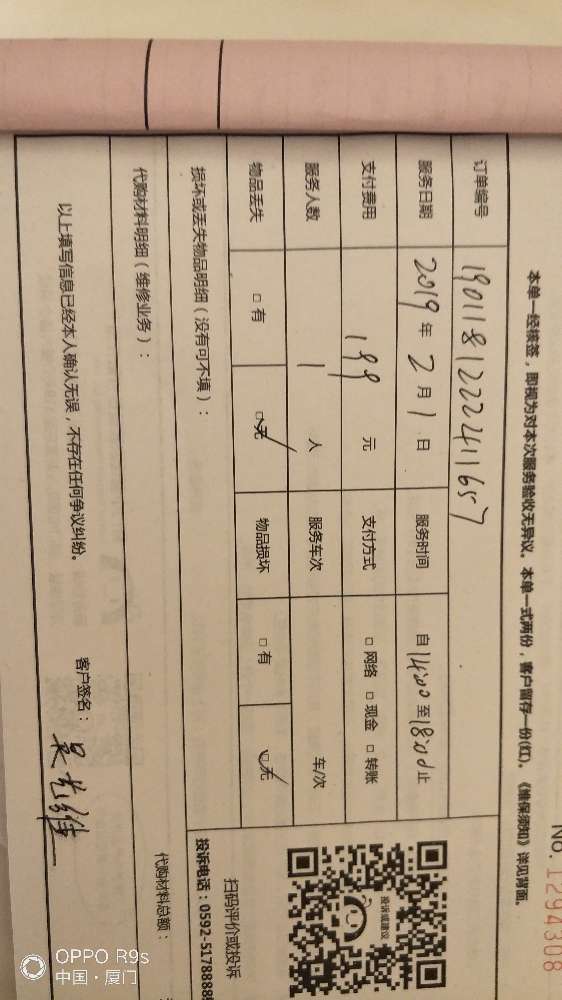 No. 1294308
本单一经核签，即视为对本次服务验收无异议。本单一式两份，客户留存一份(红)。《维保须知》详见背面。
订单编号 19011812222411657
服务日期 2019年2月1日 服务时间 自14:00至18:00止
支付费用 199元 支付方式 □网络 □现金 □转账
服务人数 1人 服务车次 车/次
物品丢失 □有 □无 物品损坏 □有 □无
损坏或丢失物品明细（没有可不填）：
代购材料明细（维修业务）：
代购材料总额：
以上填写信息已经本人确认无误，不存在任何争议纠纷。 客户签名：
投诉或建议
扫码评价或投诉
投诉电话：0592-5178888
OPPO R9s
中国·厦门